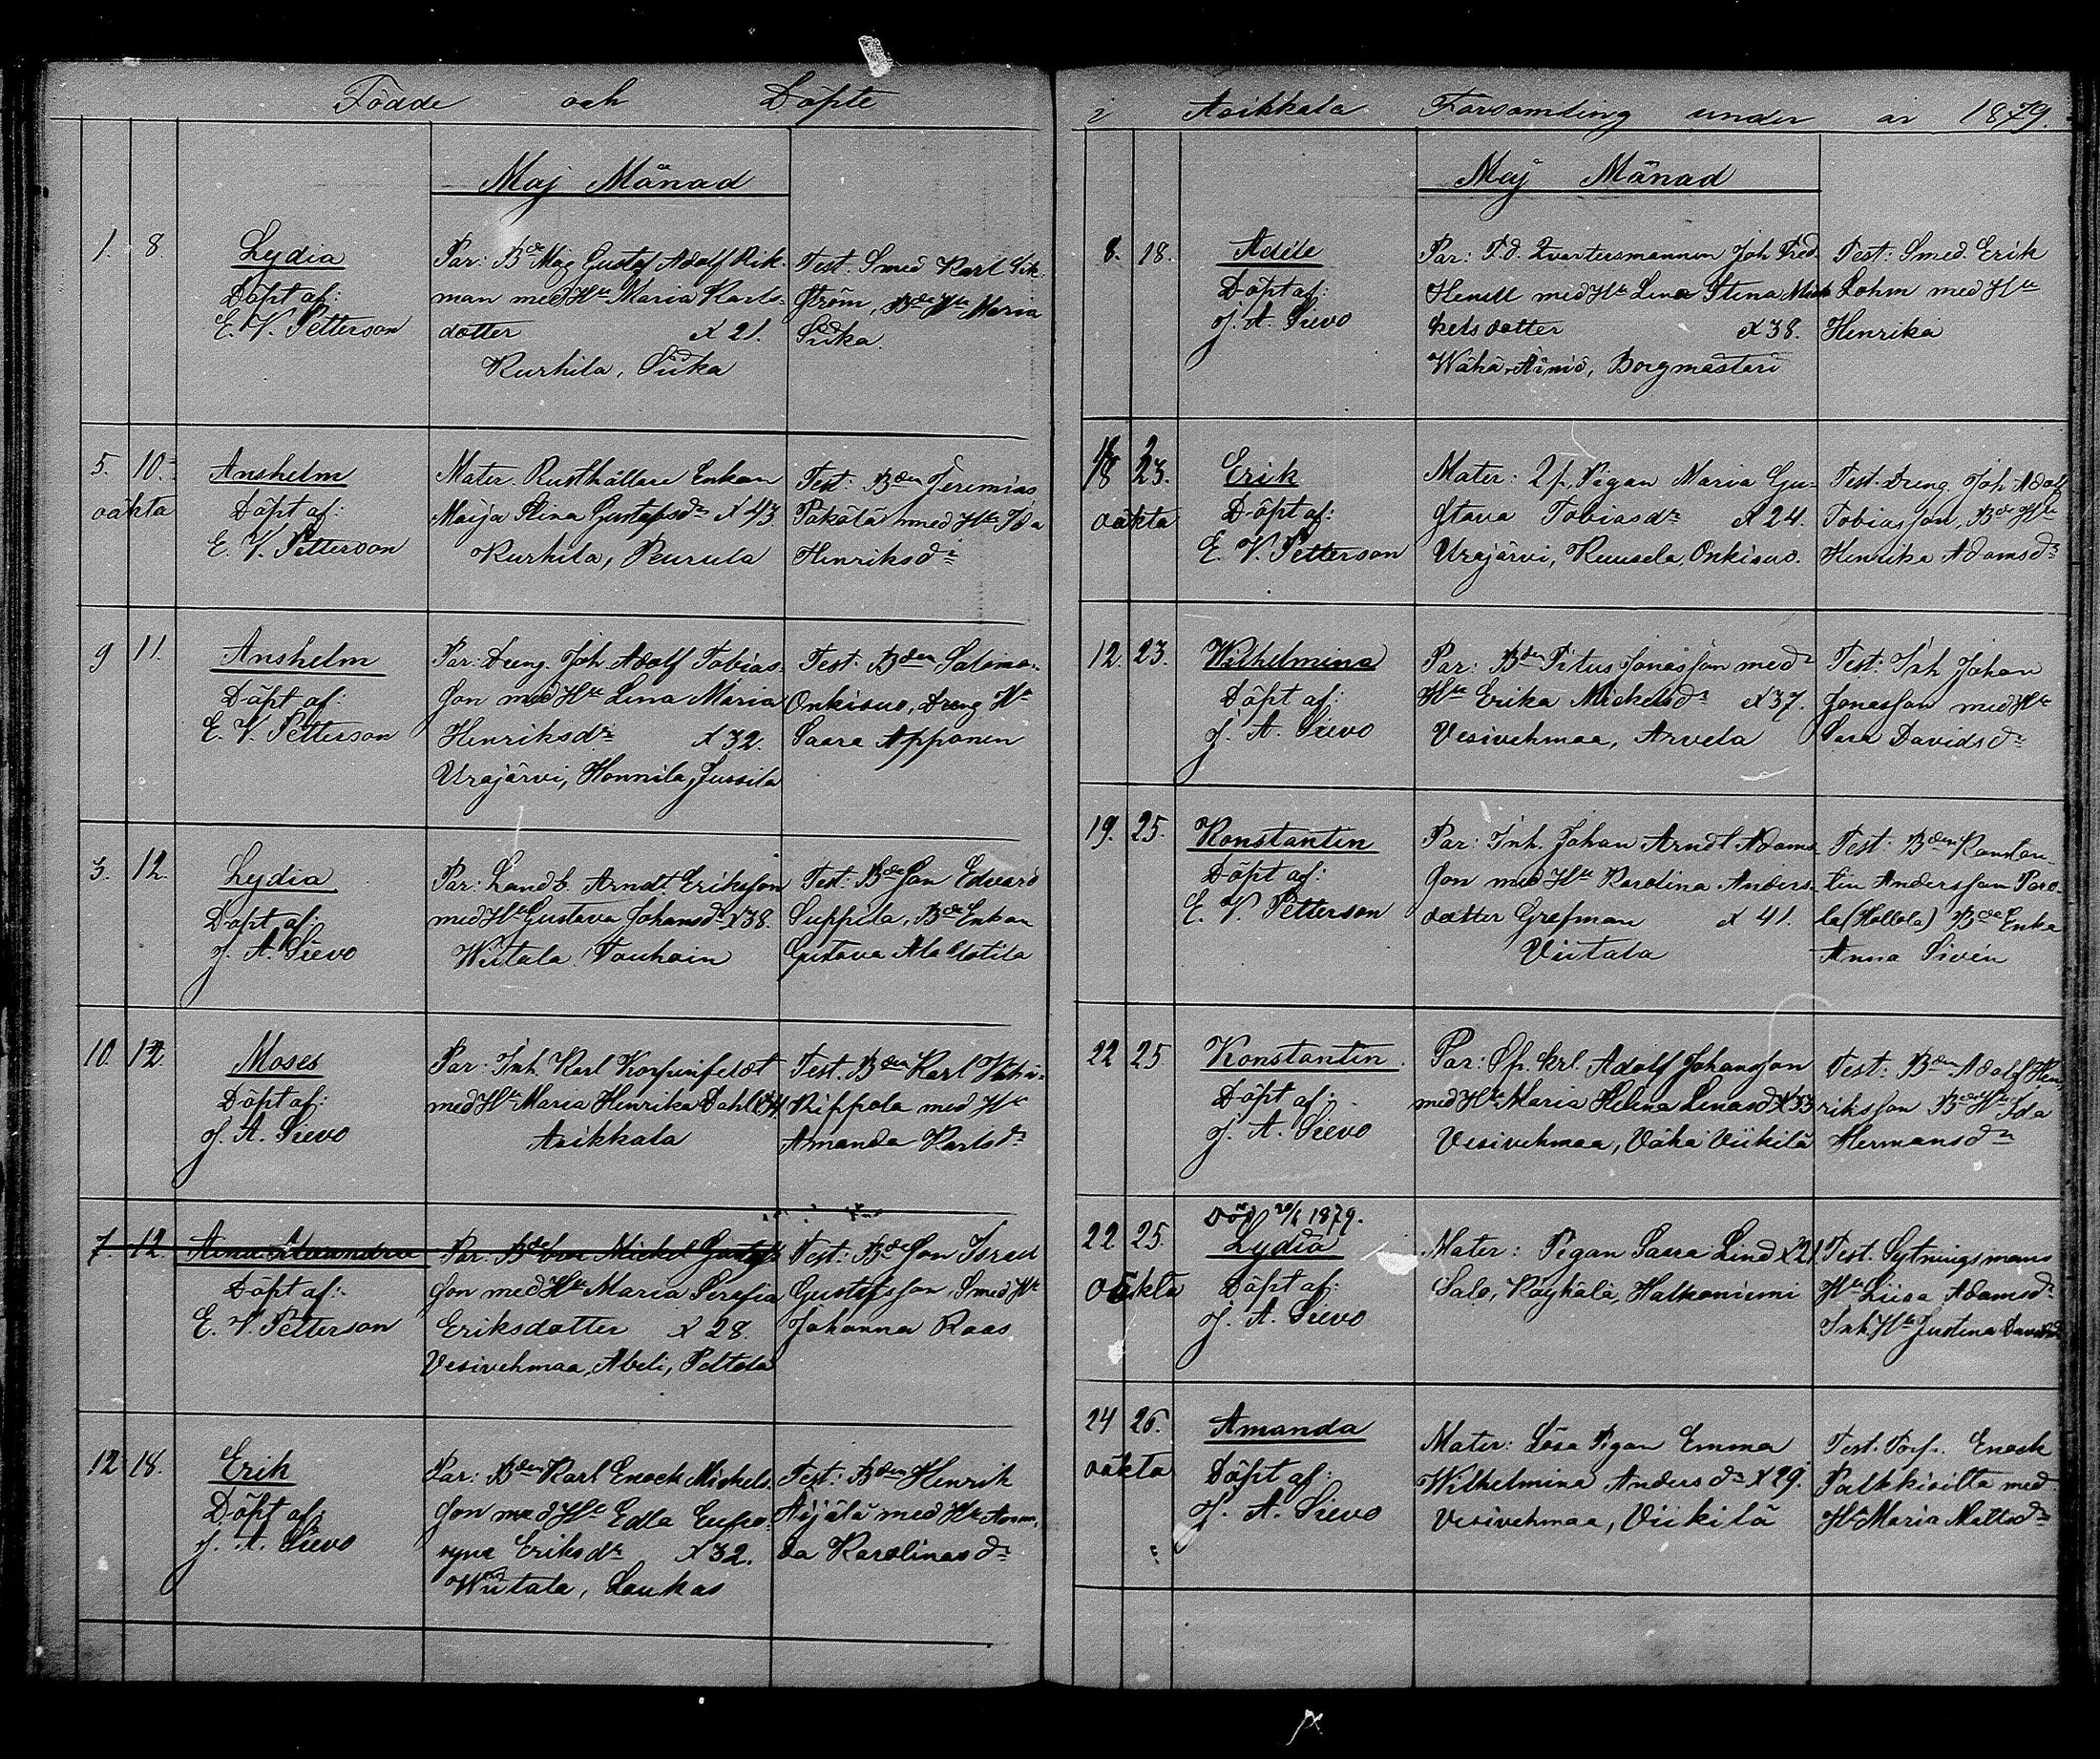 Födde och Döpte
Maj Månad
1. 8.
Lydia
Döpt af:
E. V. Petterson
Par: Bde Måg Gustaf Adolf Rik-
man med Hu Maria Karls-
dotter x 21.
Kurhila, Siika
Test. Smed Karl Sik-
ström, Bde Hu Maria
Siika.
5. 10.
oäkta
Anshelm
Döpt af:
E. V. Petterson
Mater. Rusthållare Enkan
Maija Stina Gustafsdr x 43
Kurhila, Peurula
Test: Bden Jeremias
Päkälä med Hu Ida
Henriksdr
9 11.
Anshelm
Döpt af:
E. V. Petterson
Par: Dreng. Joh Adolf Tobias-
son med Hu Lina Maria
Henriksdr x 32.
Urajärvi, Honnila, Jussila
Test: Bden Salomo.
Onkisuo, Dreng Hu
Saara Apponen
3. 12.
Lydia
Döpt af:
J. A. Sievo
Par: Landb. Arndt Eriksson
med Hu Gustava Johansdr x 38.
Wiitala Vouhoin
Test: Bde Son Edvard
Seppilä, Bde Enkan
Gustava Ala
10. 12.
Moses
Döpt af:
J. A. Sievo
Par: Inh. Karl
med Hu Maria Henrika Dahl
Asikkala
Test. Bden Karl
Kippola med Hu
Amanda Karlsdr
7. 12.
Par: Mickel Gustafs-
son med Hu Maria Serafia
Eriksdotter x 28.
Vesivehmaa, Abeli, Peltola
Döpt af:
E. V. Petterson
Test: Bde Son Israel
Gustafsson, Smed Hu
Johanna Raas
12 18.
Erik
Döpt af:
J. A. Sievo
Par: Bden Karl Enoch Mickels-
son med Hu Edla Eufro-
syne Eriksdr x 32.
Wiitala, Laukas
Test: Bden Henrik
Äijälä med Hu Aman-
da Karolinasdr
i Asikkala Församling under år 1879.
Maj Månad
8. 18.
Adéle
Döpt af:
J. A. Sievo
Par: F.d. Qvartersmannen Joh Fred.
Henell med Hu Lina Stina Mick
kelsdotter x 38.
Wähä-Äiniö, Borgmästari
Test: Smed. Erik
Lohm med Hu
Henrika
18 23.
oäkta
Erik
Döpt af:
E. V. Petterson
Mater: Pigan Maria Gu-
stava Tobiasdr x 24.
Urajärvi, Ruusela, Onkisuo.
Test: Dreng Joh Adolf
Tobiasson, Bde Hu
Henrika Adamsdr
12. 23.
Wilhelmina
Döpt af:
J. A. Sievo
Par: Bden Titus Jonasson med
Hu Erika Mickelsdr x 37.
Vesivehmaa, Arvela
Test: Inh Johan
Jonasson med Hu
Sara Davidsdr
19. 25.
Konstantin
Döpt af:
E. V. Petterson
Par: Inh. Johan Arndt Adams-
son med Hu Karolina Anders-
dotter Grefman x 41.
Viitala
Test: Bden Konstan-
tin Andersson Paro-
la (Hollola) Bde Enka
Anna Sivén
22 25.
Konstantin.
Döpt af:
J. A. Sievo
Par: Sp. krl. Adolf Johansson
med Hu Maria Helena Linasdr x 33
Vesivehmaa, Vähä Viikilä
Test: Bden Adolf Hen-
riksson Bde Hu Ida
Hermansdr
22 25.
oäkta
Död 20/6 1879.
Lydia
Döpt af:
J. A. Sievo
Mater: Pigan Saara Lind x 21.
Salo, Käyhälä, Halkoniemi
Test. Sytningsmans
Hu Liisa Adamsdr
Inh. Hu Justina
24 26.
oäkta
Amanda
Döpt af:
J. A. Sievo
Mater: Lösa Pigan Emma
Wilhelmina Andersdr x 29.
Vesivehmaa, Viikilä
Test. Torp. Enock
Palkkisilta med
Hu Maria Mattsdr